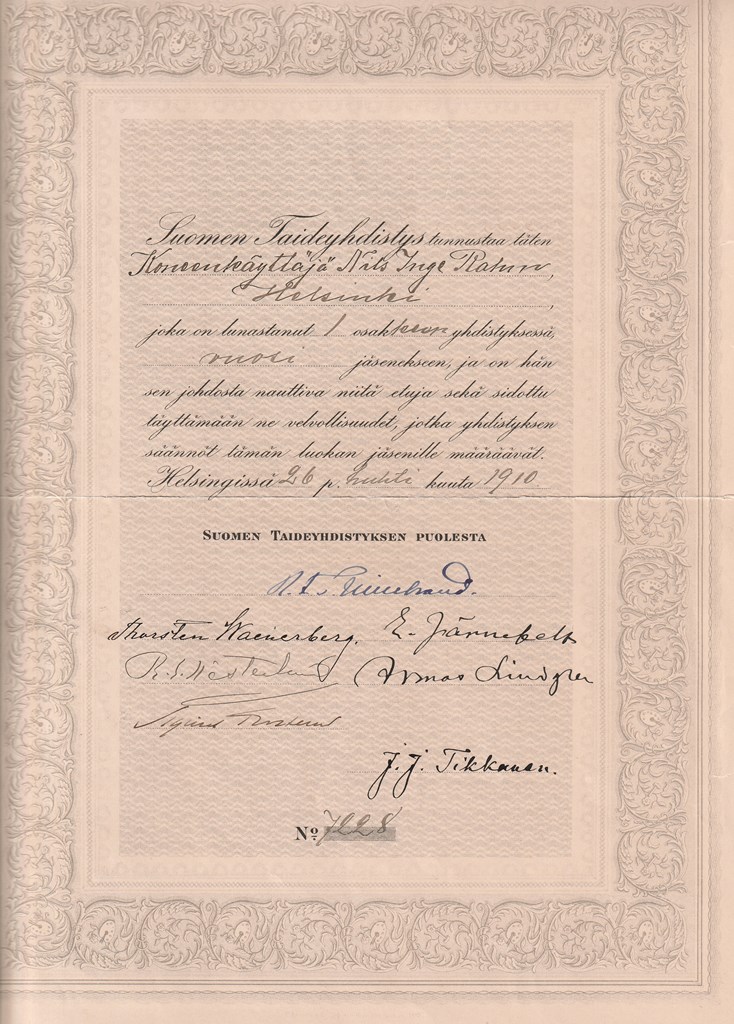 Suomen Taideyhdistys tunnustaa täten
Koneenkäyttäjä Nils Inge Ratun,
Helsinki,
joka on lunastanut 1 osakkeen yhdistyksessä,
vuosi jäsenekseen, ja on hän
sen johdosta nauttiva niitä etuja sekä sidottu
täyttämään ne velvollisuudet, jotka yhdistyksen
säännöt tämän luokan jäsenille määräävät.
Helsingissä 26 p. huhti kuuta 1910
SUOMEN TAIDEYHDISTYKSEN PUOLESTA
Thorsten Waenerberg. E. Järnefelt
Armas Lindgren
J. J. Tikkanen.
No 7228